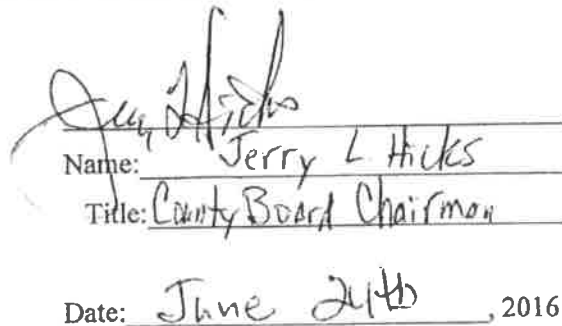 Jerry L Hicks
Name: Jerry L Hicks
Title: County Board Chairman
Date: June 24th, 2016